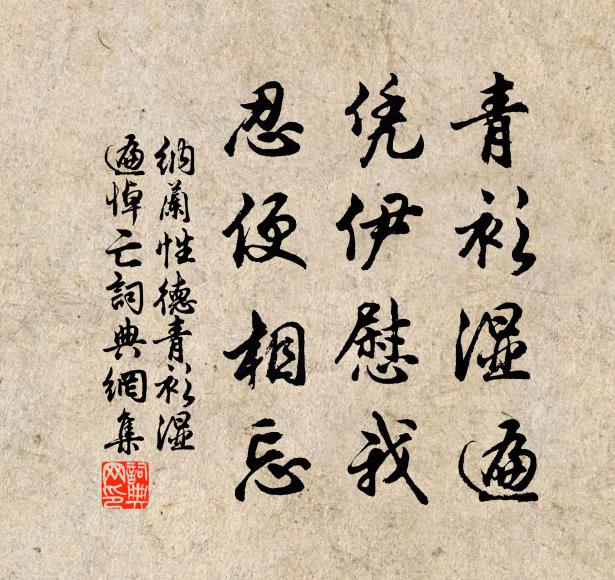 青衫湿遍
凭伊慰我
忍便相忘
纳蘭性德青衫湿
遍悼亡詞典網集
詞典网印